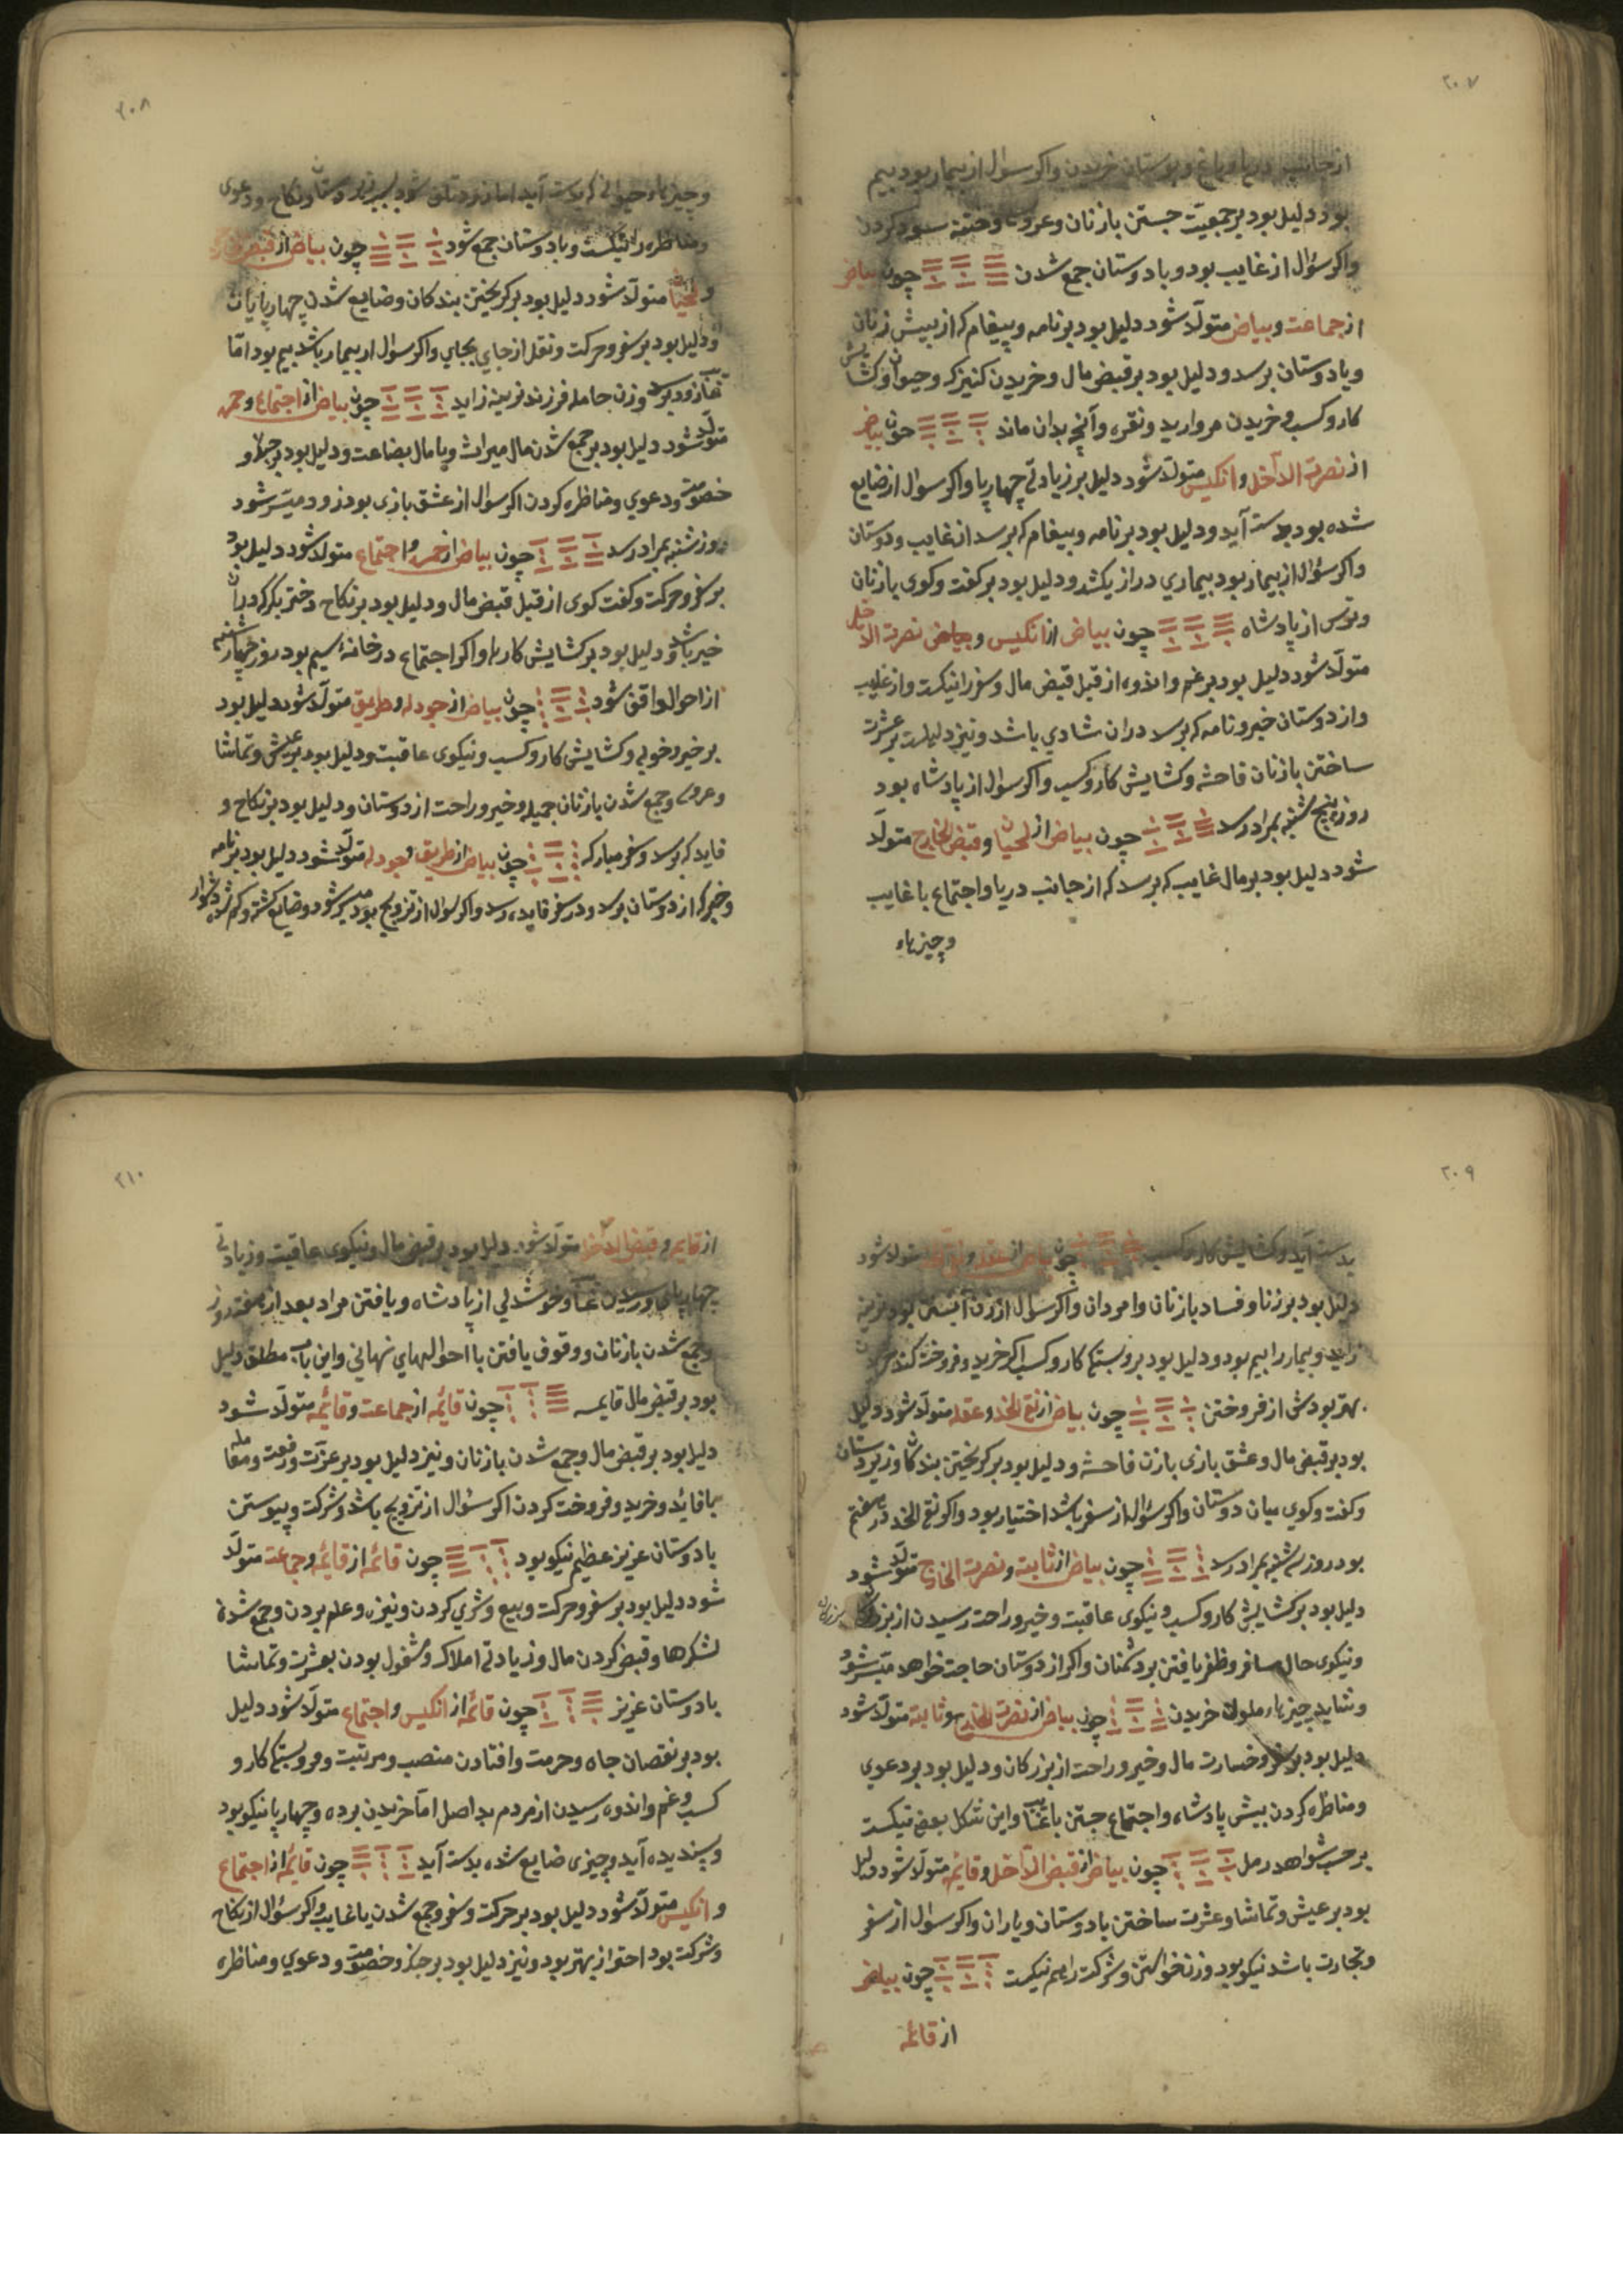 ۲۰۷
از جانب دریا و باغ و بوستان خریدن واکر سوال از بیمار بود بیم
بود دلیل بود بر جمعیت جستن با زنان و عروسی وختنه سور کردن
واکر سؤال از غایب بود و با دوستان جمع شدن چون بیاض
از جماعت وبیاض متولد شود دلیل بود بر نامه وپیغام که از پیش زنان
ویا دوستان برسد ودلیل بود بر قبض مال وخریدن کنیزک وحیوان وکشایش
کار و کسب وخریدن مروارید ونقره وآنچه بدان ماند چون بیاض
از نصرت الداخل وانکیس متولد شود دلیل بر زیادتی چهارپا واکر سوال از ضایع
شده بود بدست آید ودلیل بود بر نامه وپیغام که برسد از غایب ودوستان
واکر سؤال از بیمار بود بیماری دراز بکشد ودلیل بود بر کفت وکوی با زنان
وترس از پادشاه چون بیاض از انکیس و نصرت الداخل
متولد شود دلیل بود بر غم واندوه از قبل قبض مال وسفر را نیکست واز غایب
واز دوستان خیر ونامه که برسد در آن شادی باشد ونیز دلیلست بر عشرت
ساختن با زنان فاحشه وکشایش کار وکسب واکر سوال از پادشاه بود
روز پنج شنبه بمراد رسد چون بیاض از لحیان وقبض الخارج متولد
شود دلیل بود بر مال غایب که برسد که از جانب دریا واجتماع با غایب
وچیزهاء
۲۰۸
وچیزهاء حیوانی که بدست آید اما زود تلف شود ونکاح ودعوی
ومناظره را نیکست وبا دوستان جمع شود چون بیاض از قبض
ولحیان متولد شود دلیل بود بر کریختن بندکان وضایع شدن چهارپایان
ودلیل بود بر سفر وحرکت ونقل از جای بجای واکر سوال از بیمار باشد بیم بود اما
وزن حامله فرزند نرینه زاید چون بیاض از اجتماع وحمره
متولد شود دلیل بود بر جمع شدن مال میراث ویا مال بضاعت ودلیل بود بر جدل و
خصومت ودعوی ومناظره کردن اکر سوال از عشق بازی بود زود میسر شود
روز شنبه بمراد رسد چون بیاض از حمره واجتماع متولد شود دلیل بود
بر سفر وحرکت وکفت کوی از قبل قبض مال ودلیل بود بر نکاح دختر بکر که در آن
خیر باشد ودلیل بود بر کشایش کارها واکر اجتماع در خانهٔ سیم بود روز چهارشنبه
از احوال واقف شود چون بیاض از جودله وطریق متولد شود دلیل بود
بر خیر وخوبی وکشایش کار وکسب ونیکوی عاقبت ودلیل بود بر عیش وتماشا
وعروسی وجمع شدن با زنان جمیله وخیر وراحت از دوستان ودلیل بود بر نکاح و
فایده که برسد وسفر مبارک چون بیاض از طریق وجودله متولد شود دلیل بود بر نامه
وخبر که از دوستان برسد ودر سفر فایده رسد واکر سوال از تزویج بود میسر شود وضایع کشته وکم شده دشوار
۲۰۹
بدست آید وکشایش کار وکسب چون بیاض از عقله متولد شود
دلیل بود بر زنا وفساد با زنان وامردان واکر سوال از زن آبستن بود نرینه
زاید وبیمار را بیم بود ودلیل بود بر بستکی کار وکسب اکر خرید وفروخت کند
بهتر بودش از فروختن چون بیاض از نقی الخد وعقله متولد شود دلیل
بود بر قبض مال وعشق بازی با زن فاحشه ودلیل بود بر کریختن بندکان وزیردستان
وکفت وکوی میان دوستان واکر سؤال از سفر باشد اختیار بود واکر نقی الخد در هشتم
بود روز سه شنبه بمراد رسد چون بیاض از ثابته ونصرت الخارج متولد شود
دلیل بود بر کشایش کار وکسب ونیکوی عاقبت وخیر وراحت رسیدن از بزرکان
ونیکوی حال مسافر وظفر یافتن بر دشمنان واکر از دوستان حاجت خواهد میسر شود
ونشاید چیزهاء ملون خریدن چون بیاض از نصرت الخارج وثابته متولد شود
دلیل بود بر سفر وخسارت مال وخیر وراحت از بزرکان ودلیل بود بر دعوی
ومناظره کردن پیش پادشاه واجتماع جستن با غایب واین شکل بعضی نیکست
بر حسب شواهد رمل چون بیاض از قبض الداخل وقائمه متولد شود دلیل
بود بر عیش وتماشا وعشرت ساختن با دوستان ویاران واکر سوال از سفر
وتجارت باشد نیکو بود وزن خواستن وشرکت را هم نیکست چون بیاض
از قائمه
۲۱۰
از قایمه وقبض الداخل متولد شود دلیل بود بر قبض مال ونیکوی عاقبت وزیادتی
چهارپای ورسیدن غایب وخوشدلی از پادشاه ویافتن مراد بعد از هفت روز
وجمع شدن با زنان ووقوف یافتن با احوالهای نهانی واین باب مطلق دلیل
بود بر قبض مال قایمه چون قائمه از جماعت وقائمه متولد شود
دلیل بود بر قبض مال وجمع شدن با زنان ونیز دلیل بود بر عزت ورفعت ومعامله
با فائده وخرید وفروخت کردن اکر سؤال از تزویج باشد وشرکت وپیوستن
با دوستان عزیز عظیم نیکو بود چون قائمه از قایمه وجماعت متولد
شود دلیل بود بر سفر وحرکت وبیع وشری کردن ونیزه وعلم بردن وجمع شدن
لشکرها وقبض کردن مال وزیادتی املاک ومشغول بودن بعشرت وتماشا
با دوستان عزیز چون قائمه از انکیس واجتماع متولد شود دلیل
بود بر نقصان جاه وحرمت وافتادن منصب ومرتبت وفروبستکی کار و
کسب وغم واندوه رسیدن از مردم بد اصل اما خریدن برده وچهارپا نیکو بود
وپسندیده آید وچیزی ضایع شده بدست آید چون قائمه از اجتماع
وانکیس متولد شود دلیل بود بر حرکت وسفر وجمع شدن با غایب واکر سؤال از نکاح
وشرکت بود احتراز بهتر بود ونیز دلیل بود بر جنک وخصومت ودعوی ومناظره